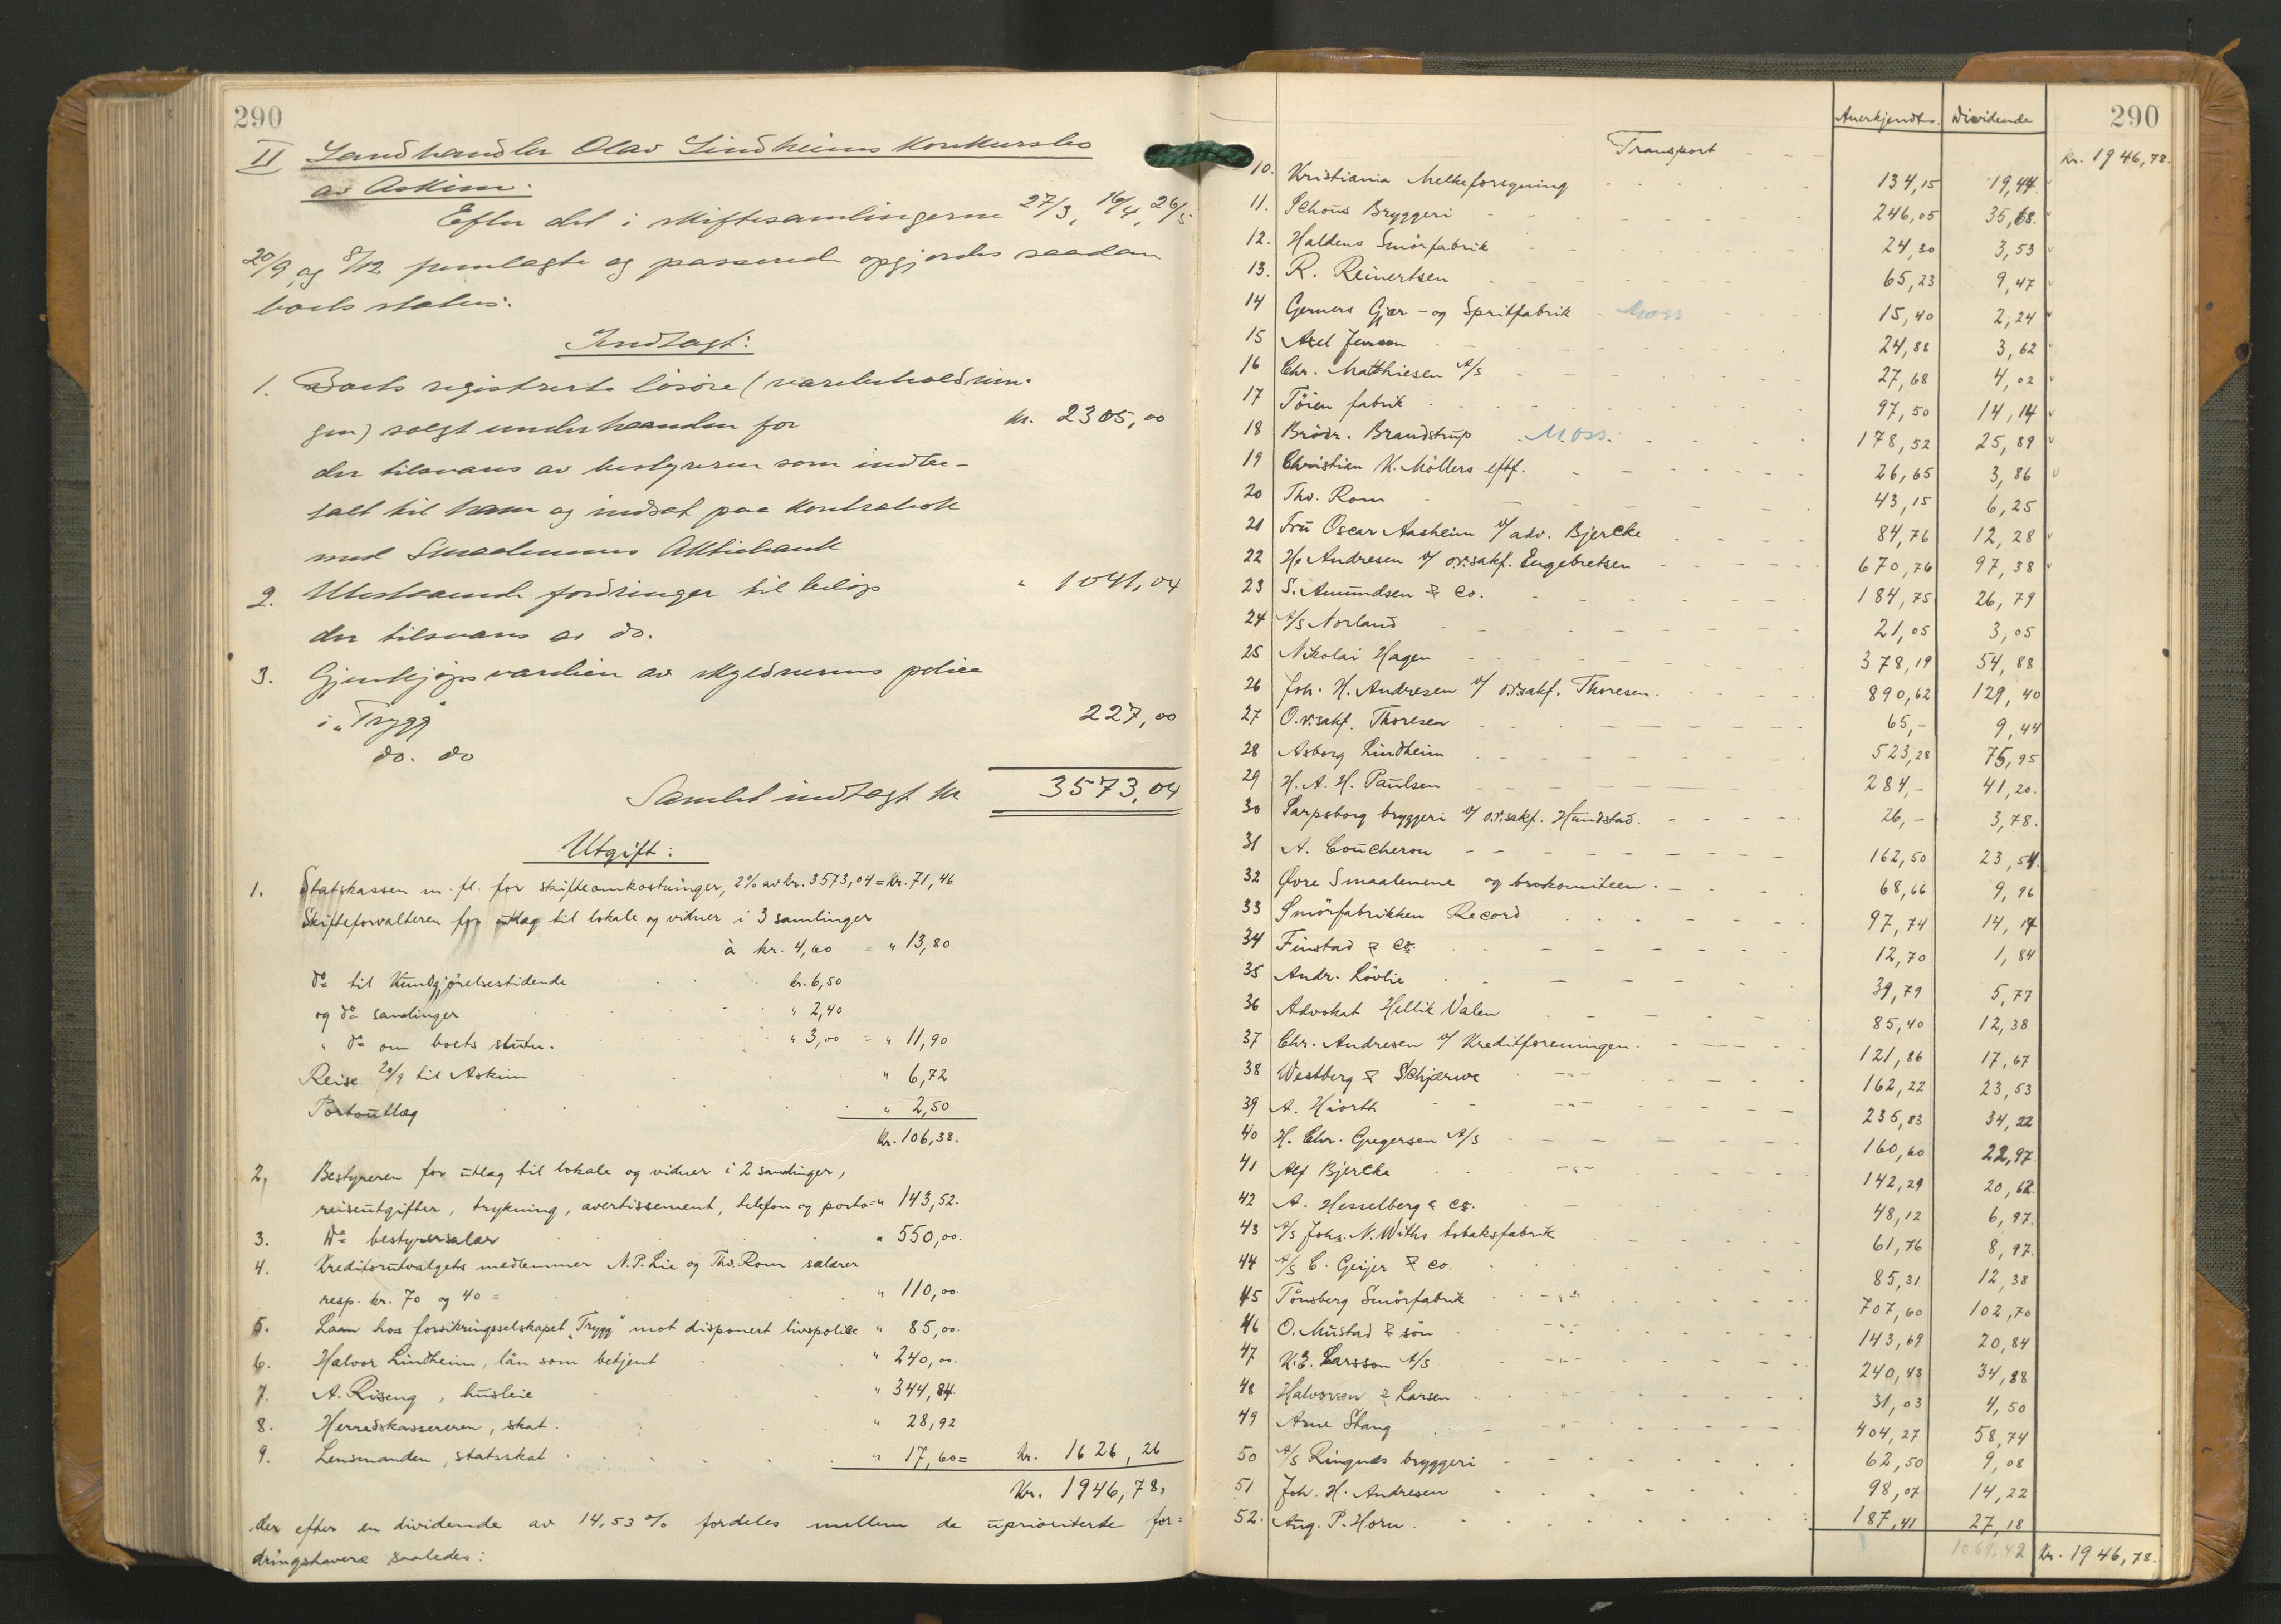 290
II Landhandler Olav Lindheims Konkursbo
av Askim.
Efter det i skiftesamlingerne 27/3, 16/4, 26/5
20/9, og 8/12 fremlagte og passerede opgjordes saadan
boets status:
Indtægt:
1. Boets registrerte lösöre (varebeholdnin-
gen) solgt underhaanden for kr. 2305,00
der tilsvares av bestyreren som indbe-
talt til ham og indsat paa Kontrabok
med Smaalenenes Aktiebank
2. Utestaaende fordringer til beløp " 1041,04
der tilsvares av do.
3. Gjenkjøpsværdien av skyldnerens police
i "Trygg" 227,00
do. do
Samlet indtægt kr 3573,04
Utgift:
1. Statskassen m. fl. for skifteomkostninger, 2% av kr. 3573,04 = Kr. 71,46
Skifteforvalteren for utlæg til lokale og vidner i 3 samlinger
à kr. 4,60 = " 13,80
do til Kundgjørelsestidende kr. 6,50
og do samlinger " 2,40
" do om boets slutn. " 3,00 = " 11,90
Reise 20/9 til Askim " 6,72
Portoutlæg " 2,50
Kr. 106,38.
2, Bestyreren for utlæg til lokale og vidner i 2 samlinger,
reiseutgifter, trykning, avertissement, telefon og porto = " 143,52.
3. Do bestyrersalær " 550,00.
4. Kreditorutvalgets medlemmer N.P. Lie og Thv. Rom salærer
resp. kr. 70 og 40 = " 110,00.
5. Laan hos forsikringsselskapet "Trygg" mot disponert livspolice " 85,00.
6. Halvor Lindheim, lön som betjent " 240,00.
7. A. Riseng, husleie " 344,84.
8. Herredskassereren, skat. " 28,92
9. Lensmanden, statsskat " 17,60 = Kr. 1626,26
Kr. 1946,78.
der efter en dividende av 14,53% fordeles mellem de uprioriterte for=
dringshavere saaledes:
Anerkjendt. Dividende 290
Transport Kr. 1946,78.
10. Kristiania Melkeforsyning 134,15 19,44.
11. Schous Bryggeri 246,05 35,68.
12. Haldens Smörfabrik 24,30 3,53
13. R. Reinertsen 65,23 9,47
14 Gerners Gjær- og Spritfabrik Moss 15,40 2,24
15 Axel Jensen 24,88 3,62
16 Chr. Matthiesen A/S 27,68 4,02
17 Töien fabrik 97,50 14,14
18 Brödr. Brandstrup Moss. 178,52 25,89
19 Christian K. Möllers eftf. 26,65 3,86
20 Thv. Rom 43,15 6,25
21 Fru Oscar Aasheim v/ adv. Bjercke 84,76 12,28
22 H. Andresen v/ o.r.sakf. Engebretsen 670,76 97,38
23 S. Amundsen & Co. 184,75 26,79
24 A/S Norland 21,05 3,05
25 Nikolai Hagen 378,19 54,88
26 Joh. H. Andresen v/ o.r.sakf. Thoresen. 890,62 129,40
27 O.r.sakf. Thoresen 65,- 9,44
28 Asborg Lindheim 523,28 75,95
29 H. A. H. Paulsen 284,- 41,20.
30 Sarpsborg bryggeri v/ o.r.sakf. Hundstad. 26,- 3,78.
31 A. Coucheron 162,50 23,54
32 Øvre Smaalenene og brokomiteen. 68,66 9,96
33 Smörfabrikken Record 97,74 14,14
34 Finstad & Co. 12,70 1,84
35 Andr. Lövlie 39,79 5,77
36 Advokat Hellik Valen 85,40 12,38
37 Chr. Andresen v/ Kreditforeningen. 121,86 17,67
38 Westberg & Schjerwe -"- 162,22 23,53
39 A. Hiorth -"- 235,83 34,22
40 H. Chr. Gregersen A/S 160,60 22,97
41 Alf Bjercke -"- 142,29 20,62.
42 A. Hesselberg & Co. 48,12 6,97.
43 A/S Johs. N. Withs tobaksfabrik 61,76 8,97.
44 A/S C. Geijer & Co. 85,31 12,38
45 Tönsberg Smörfabrik -"- 707,60 102,70
46 O. Mustad & sön -"- 143,69 20,84
47 K. E. Larsson A/S -"- 240,43 34,88
48 Halvorsen & Larsen -"- 31,03 4,50
49 Arne Stang -"- 404,27 58,74
50 A/S Ringnes bryggeri 62,50 9,08
51 Joh. H. Andresen 98,07 14,22
52. Aug. P. Horn. 187,41 27,18
1069,42 Kr. 1946,78.